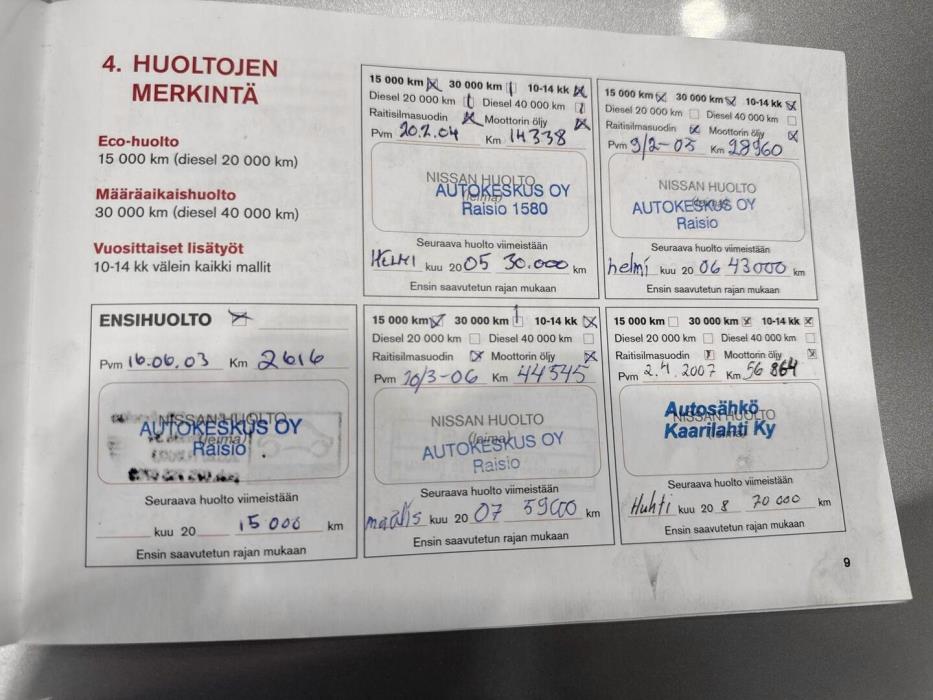 4. HUOLTOJEN
MERKINTÄ
Eco-huolto
15 000 km (diesel 20 000 km)
Määräaikaishuolto
30 000 km (diesel 40 000 km)
Vuosittaiset lisätyöt
10-14 kk välein kaikki mallit
15 000 km 30 000 km 10-14 kk
Diesel 20 000 km Diesel 40 000 km
Raitisilmasuodin Moottorin öljy
Pvm 20.2.04 Km 14338
NISSAN HUOLTO
AUTOKESKUS OY
(leima)
Raisio 1580
Seuraava huolto viimeistään
HELMI kuu 2005 30.000 km
Ensin saavutetun rajan mukaan
15 000 km 30 000 km 10-14 kk
Diesel 20 000 km Diesel 40 000 km
Raitisilmasuodin Moottorin öljy
Pvm 9/2-05 Km 28960
NISSAN HUOLTO
(leima)
AUTOKESKUS OY
Raisio
Seuraava huolto viimeistään
helmi kuu 2006 43000 km
Ensin saavutetun rajan mukaan
ENSIHUOLTO
Pvm 16.06.03 Km 2616
NISSAN HUOLTO
AUTOKESKUS OY
(leima)
Raisio
Seuraava huolto viimeistään
kuu 20 15000 km
Ensin saavutetun rajan mukaan
15 000 km 30 000 km 10-14 kk
Diesel 20 000 km Diesel 40 000 km
Raitisilmasuodin Moottorin öljy
Pvm 20/3-06 Km 44545
NISSAN HUOLTO
(leima)
AUTOKESKUS OY
Raisio
Seuraava huolto viimeistään
maalis kuu 2007 59000 km
Ensin saavutetun rajan mukaan
15 000 km 30 000 km 10-14 kk
Diesel 20 000 km Diesel 40 000 km
Raitisilmasuodin Moottorin öljy
Pvm 2.4.2007 Km 56864
Autosähkö
NISSAN HUOLTO
Kaarilahti Ky
(leima)
Seuraava huolto viimeistään
Huhti kuu 208 70000 km
Ensin saavutetun rajan mukaan
9